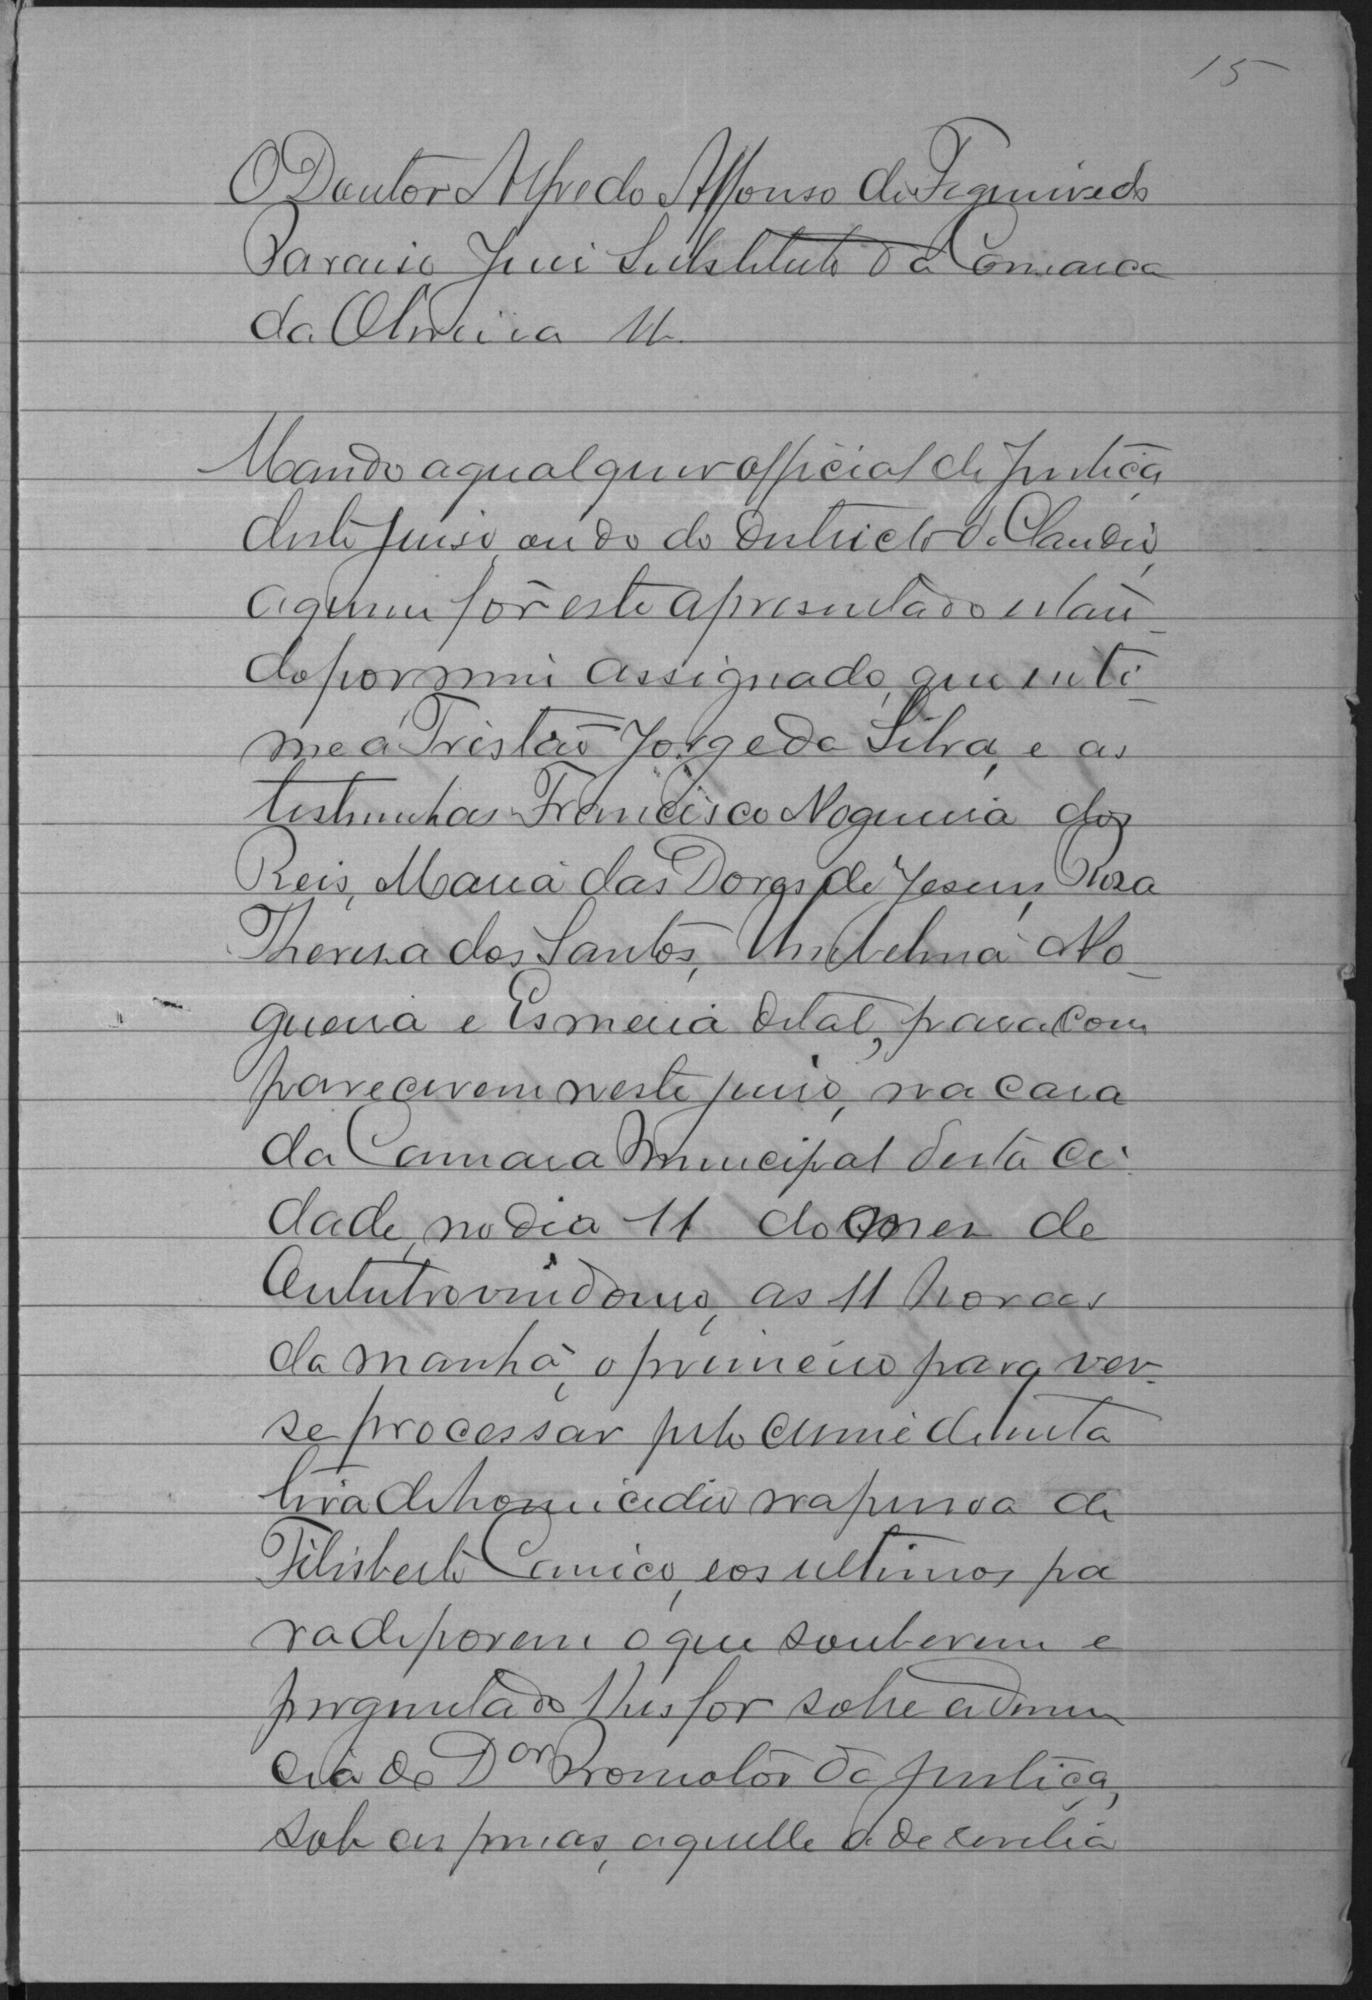 15
O Doutor Alfredo Affonso de Figueiredo
Paraiso Juis Substituto da Comarca
da Oliveira &.
Mando a qual quer official de Justiça
deste Juiso, ou do do Districto do Claudio,
a quem fôr este apresentado estan-
do por mim assignado, que inti-
me á Tristão Jorge da Silva, e as
testmunhas Francisco Nogueira dos
Reis, Maria das Dores de Jesus, Rosa
Thereza dos Santos, Umbelina No-
gueira e Esmeria de tal, para com
parecerem neste juiso, na casa
da Camara Municipal desta ci-
dade, no dia 11 do mez de
Outubro vindouro, as 11 horas
da manhã, o primeiro para ver-
se processar pelo crime de tenta
tiva de homicidio na pessoa de
Felisberto Canico, e os ultimos pa
ra deporem o que souberem e
perguntado lhes for sobre a denun
cia do Dor Promotor da Justiça,
sob as penas, aquelle a de revelia